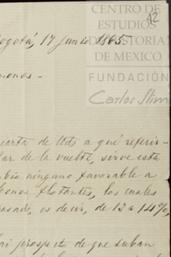 CENTRO DE
ESTUDIOS
DE HISTORIA
DE MEXICO
FUNDACIÓN
Carlos Slim
12
Bogotá, 17 Junio 1865
carta de Uds a qué referir-
de la vuelta, sirve esta
ningun favorable a
bonos flotantes, los cuales
pasado, es decir, de 12 a 14%,
prospecto de que suban